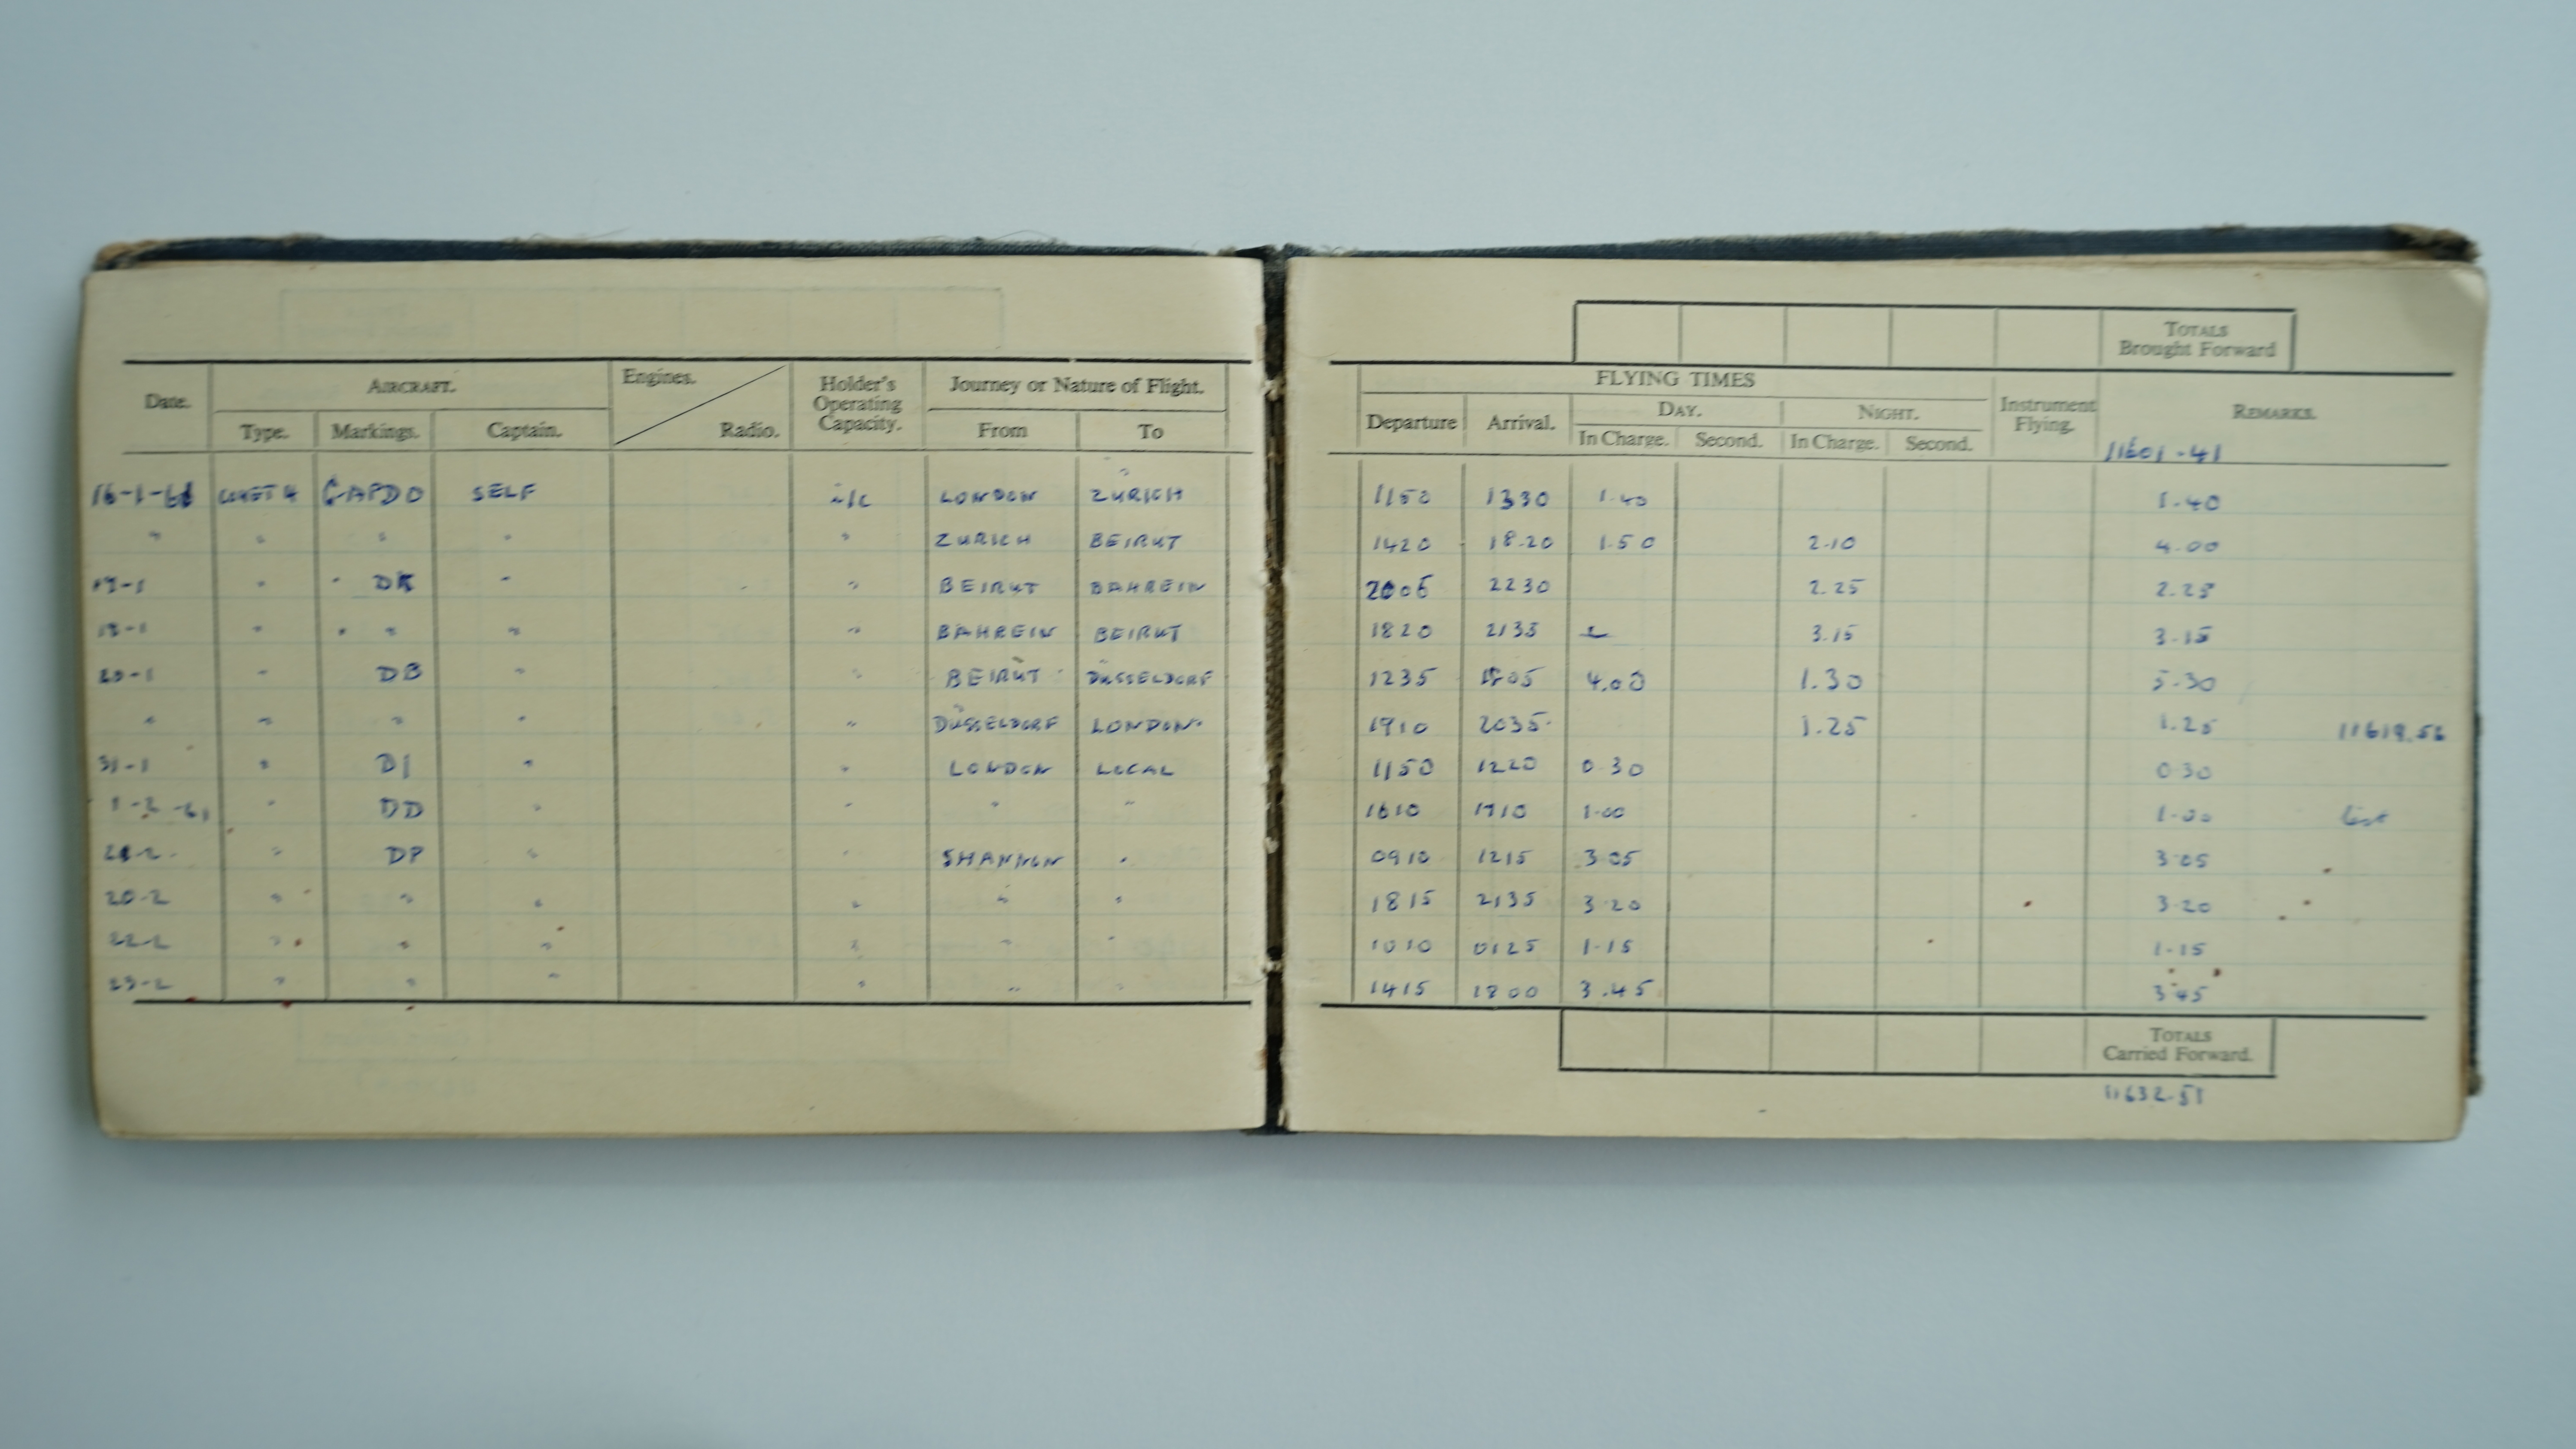 TOTALS
Brought Forward
Date. AIRCRAFT. Engines. Radio. Holder's Operating Capacity. Journey or Nature of Flight.
Type. Markings. Captain. From To
FLYING TIMES Instrument Flying. REMARKS.
Departure Arrival. DAY. NIGHT.
In Charge. Second. In Charge. Second.
11601-41
16-1-61 COMET 4 GAPDO SELF i/c LONDON ZURICH 1150 1330 1.40 1.40
" " " " " ZURICH BEIRUT 1420 18.20 1.50 2.10 4.00
17-1 " " DK " " BEIRUT BAHREIN 2005 2230 2.25 2.25
" " " " BAHREIN BEIRUT 1820 2135 3.15 3.15
20-1 " DB " " BEIRUT DÜSSELDORF 1235 1805 4.00 1.30 5.30
" " " " " DÜSSELDORF LONDON. 1910 2035 1.25 1.25
31-1 " DI " " LONDON LOCAL 1150 1220 0.30 0.30
1-2-61 " DD " " " " 1610 1710 1.00 1.00
" DP " " SHANNON " 0910 1215 3.05 3.05
20-2 " " " " " " 1815 2135 3.20 3.20
22-2 " " " " " " 1010 1.15 1.15
23-2 " " " " " " 1415 1800 3.45 3.45
TOTALS
Carried Forward.
11632-51